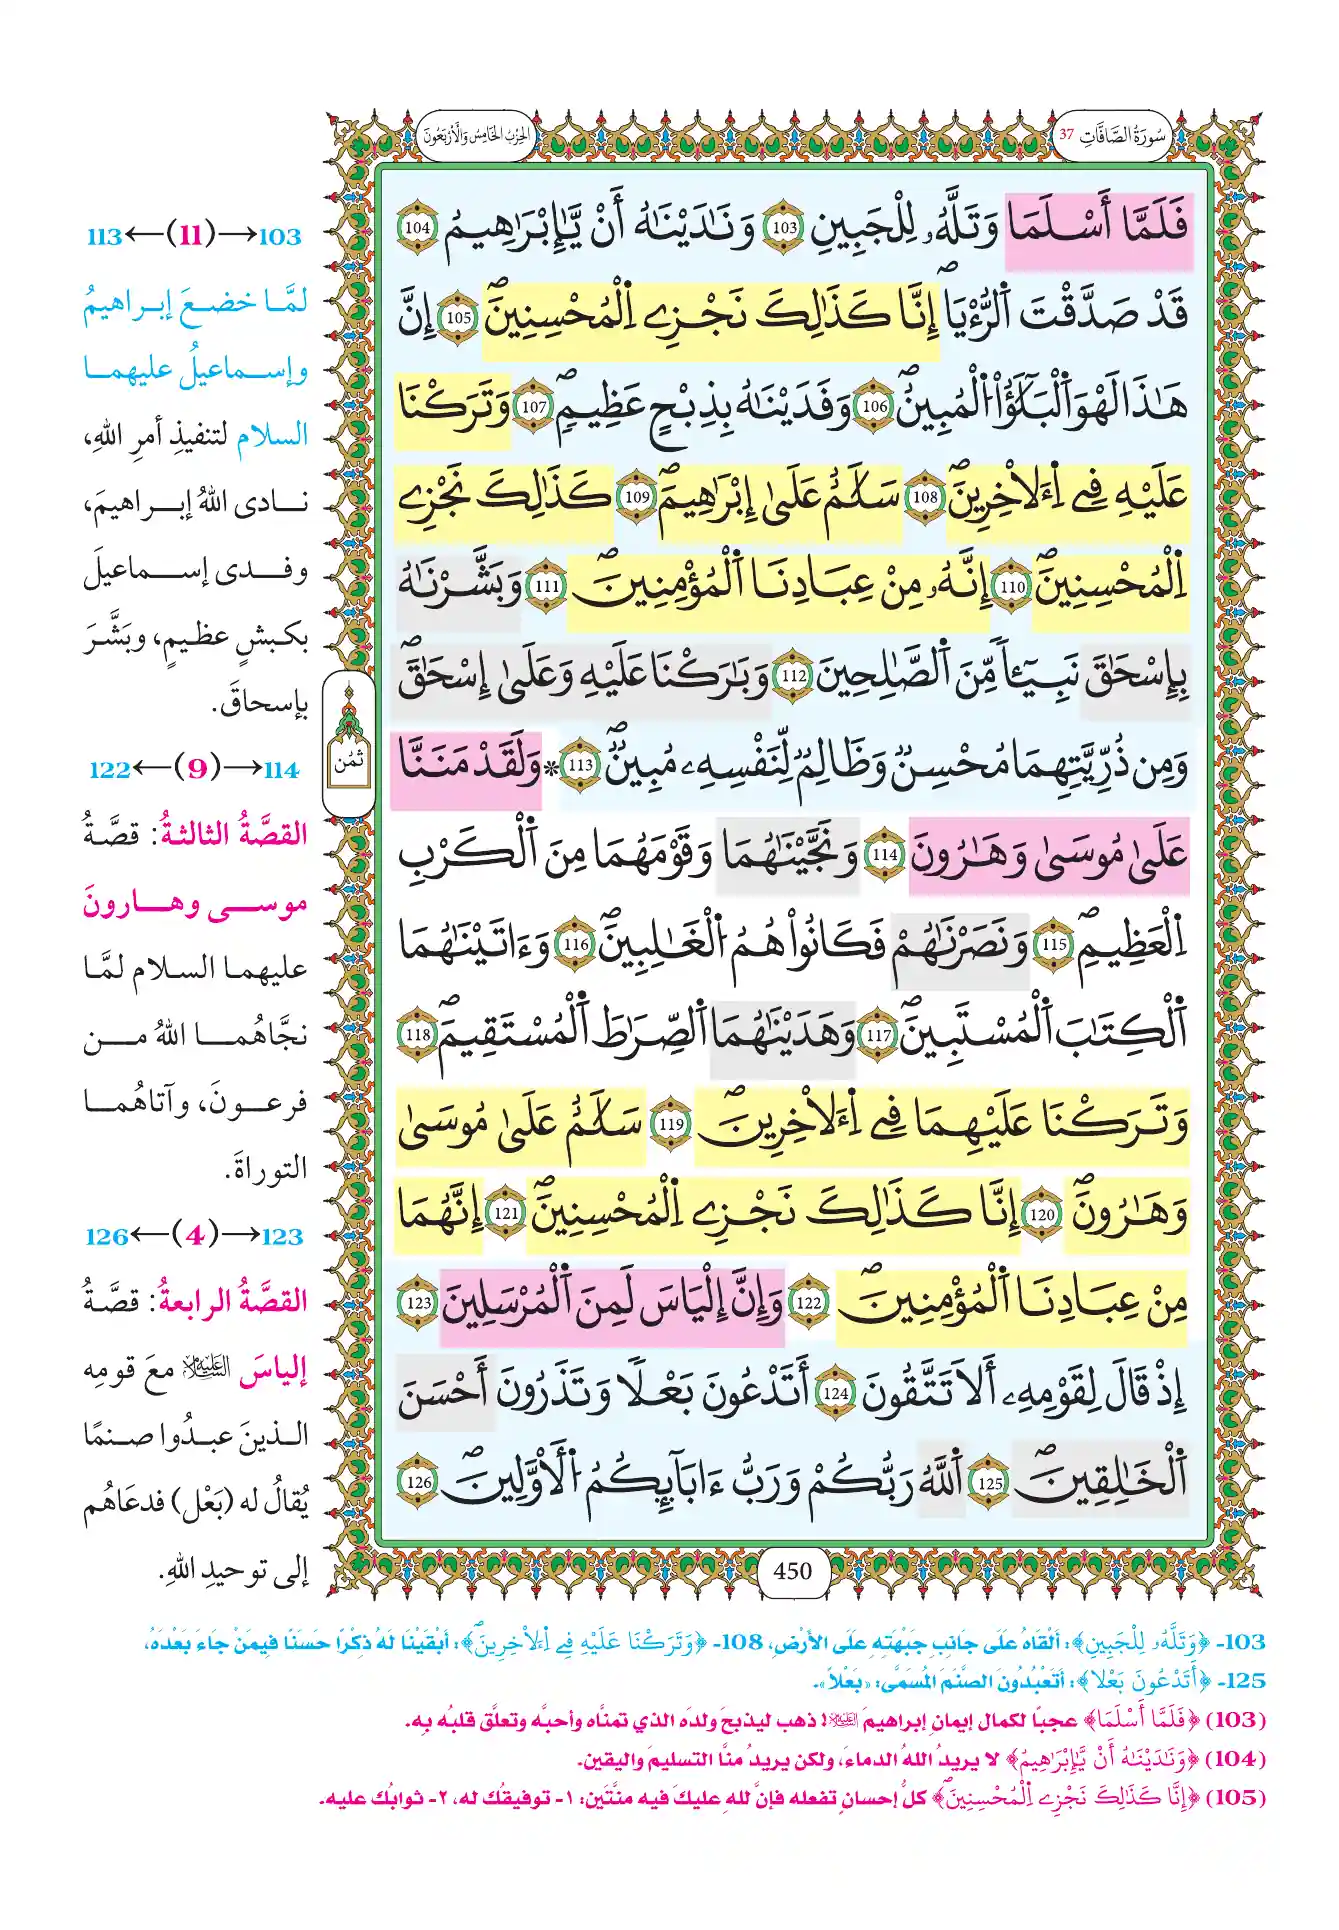 سُورَةُ الصَّافَّاتِ 37
الحِزْبُ الخَامِسُ وَالأَرْبَعُونَ
فَلَمَّا أَسْلَمَا وَتَلَّهُۥ لِلْجَبِينِ 103 وَنَٰدَيْنَٰهُ أَنْ يَّٰإِبْرَٰهِيمُ 104
قَدْ صَدَّقْتَ اَ۬لرُّءْي۪اۖ إِنَّا كَذَٰلِكَ نَجْزِے اِ۬لْمُحْسِنِينَۖ 105 إِنَّ
هَٰذَا لَهْوَ اَ۬لْبَلَٰٓؤُاْ اُ۬لْمُبِينُۖ 106 وَفَدَيْنَٰهُ بِذِبْحٍ عَظِيمٖۖ 107 وَتَرَكْنَا
عَلَيْهِ فِے اِ۬لَاخِرِينَۖ 108 سَلَٰمٌ عَلَىٰ إِبْرَٰهِيمَۖ 109 كَذَٰلِكَ نَجْزِے
اِ۬لْمُحْسِنِينَۖ 110 إِنَّهُۥ مِنْ عِبَادِنَا اَ۬لْمُؤْمِنِينَۖ 111 وَبَشَّرْنَٰهُ
بِإِسْحَٰقَ نَبِيٓـٔاٗ مِّنَ اَ۬لصَّٰلِحِينَ 112 وَبَٰرَكْنَا عَلَيْهِ وَعَلَىٰ إِسْحَٰقَۖ
وَمِن ذُرِّيَّتِهِمَا مُحْسِنٞ وَظَالِمٞ لِّنَفْسِهِۦ مُبِينٞۖ 113 * وَلَقَدْ مَنَنَّا
عَلَىٰ مُوسَىٰ وَهَٰرُونَ 114 وَنَجَّيْنَٰهُمَا وَقَوْمَهُمَا مِنَ اَ۬لْكَرْبِ
اِ۬لْعَظِيمِۖ 115 وَنَصَرْنَٰهُمْ فَكَانُواْ هُمُ اُ۬لْغَٰلِبِينَۖ 116 وَءَاتَيْنَٰهُمَا
اَ۬لْكِتَٰبَ اَ۬لْمُسْتَبِينَۖ 117 وَهَدَيْنَٰهُمَا اَ۬لصِّرَٰطَ اَ۬لْمُسْتَقِيمَۖ 118
وَتَرَكْنَا عَلَيْهِمَا فِے اِ۬لَاخِرِينَۖ 119 سَلَٰمٌ عَلَىٰ مُوسَىٰ
وَهَٰرُونَۖ 120 إِنَّا كَذَٰلِكَ نَجْزِے اِ۬لْمُحْسِنِينَۖ 121 إِنَّهُمَا
مِنْ عِبَادِنَا اَ۬لْمُؤْمِنِينَۖ 122 وَإِنَّ إِلْيَاسَ لَمِنَ اَ۬لْمُرْسَلِينَ 123
إِذْ قَالَ لِقَوْمِهِۦ أَلَا تَتَّقُونَ 124 أَتَدْعُونَ بَعْلاٗ وَتَذَرُونَ أَحْسَنَ
اَ۬لْخَٰلِقِينَۖ 125 اَ۬للَّهُ رَبُّكُمْ وَرَبُّ ءَابَآئِكُمُ اُ۬لَاوَّلِينَۖ 126
450
ثُمُن
103→(11)←113
لمَّا خضعَ إبراهيمُ
وإسماعيلُ عليهما
السلام لتنفيذِ أمرِ اللهِ،
نادى اللهُ إبراهيمَ،
وفدى إسماعيلَ
بكبشٍ عظيمٍ، وبَشَّرَ
بإسحاقَ.
114→(9)←122
القصَّةُ الثالثةُ: قصَّةُ
موسى وهارونَ
عليهما السلام لمَّا
نجَّاهُما اللهُ من
فرعونَ، وآتاهُما
التوراةَ.
123→(4)←126
القصَّةُ الرابعةُ: قصَّةُ
إلياسَ عليه السلام معَ قومِه
الذينَ عبدُوا صنمًا
يُقالُ له (بَعْل) فدعَاهُم
إلى توحيدِ اللهِ.
103- ﴿وَتَلَّهُۥ لِلْجَبِينِ﴾: أَلْقَاهُ عَلَى جَانِبِ جَبْهَتِهِ عَلَى الأَرْضِ، 108- ﴿وَتَرَكْنَا عَلَيْهِ فِے اِ۬لَاخِرِينَۖ﴾: أَبْقَيْنَا لَهُ ذِكْرًا حَسَنًا فِيمَنْ جَاءَ بَعْدَهُ،
125- ﴿أَتَدْعُونَ بَعْلاٗ﴾: أَتَعْبُدُونَ الصَّنَمَ المُسَمَّى: «بَعْلًا».
(103) ﴿فَلَمَّا أَسْلَمَا﴾ عجبًا لكمال إيمانِ إبراهيمَ عليه السلام! ذهب ليذبحَ ولدَه الذي تمنَّاه وأحبَّه وتعلَّق قلبُه بِه.
(104) ﴿وَنَٰدَيْنَٰهُ أَنْ يَّٰإِبْرَٰهِيمُ﴾ لا يريدُ اللهُ الدماءَ، ولكن يريدُ منَّا التسليمَ واليقين.
(105) ﴿إِنَّا كَذَٰلِكَ نَجْزِے اِ۬لْمُحْسِنِينَۖ﴾ كلُّ إحسانٍ تفعله فإنَّ للهِ عليكَ فيه منَّتَين: ١- توفيقُك له، ٢- ثوابُك عليه.